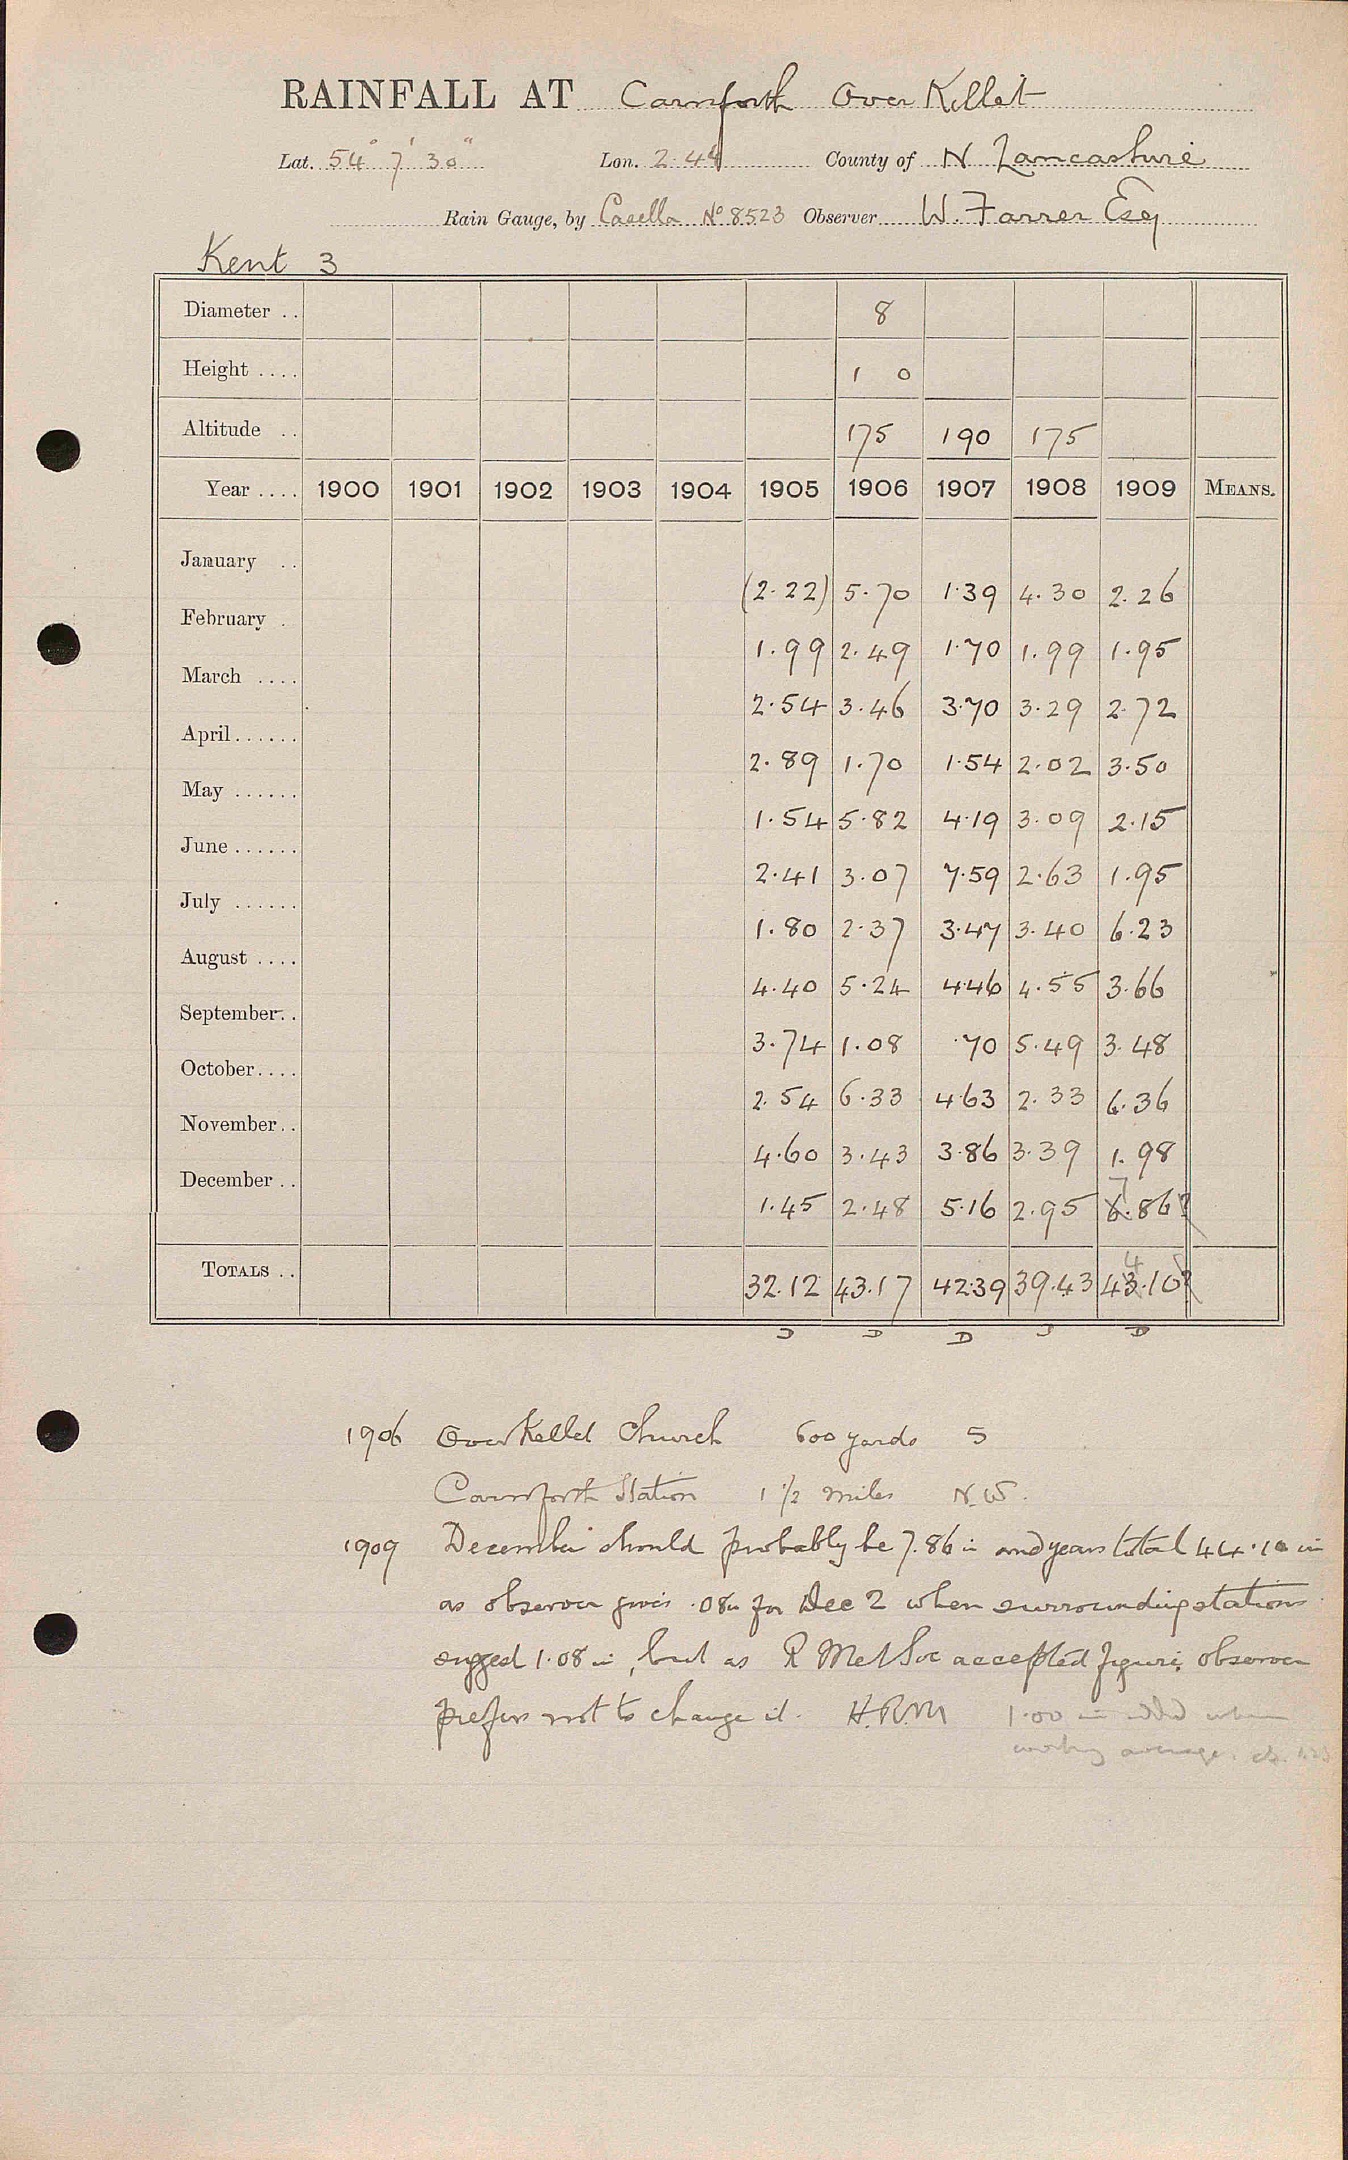 RAINFALL AT Carnforth Over Kellet
Lat. 54° 7' 30" Lon. 2.44 County of N. Lancashire
Rain Gauge, by Casella No 8523 Observer W. Farrer Esq
Kent 3
Diameter .. 8
Height .... 1 0
Altitude .. 175 190 175
Year .... 1900 1901 1902 1903 1904 1905 1906 1907 1908 1909 MEANS.
January .. (2.22) 5.70 1.39 4.30 2.26
February . 1.99 2.49 1.70 1.99 1.95
March .... 2.54 3.46 3.70 3.29 2.72
April...... 2.89 1.70 1.54 2.02 3.50
May ...... 1.54 5.82 4.19 3.09 2.15
June ...... 2.41 3.07 7.59 2.63 1.95
July ...... 1.80 2.37 3.47 3.40 6.23
August .... 4.40 5.24 4.46 4.55 3.66
September.. 3.74 1.08 .70 5.49 3.48
October.... 2.54 6.33 4.63 2.33 6.36
November.. 4.60 3.43 3.86 3.39 1.98
7
December .. 1.45 2.48 5.16 2.95 6.86?
4
TOTALS .. 32.12 43.17 42.39 39.43 43.10?
D D D D D
1906 Over Kellet Church 600 yards S
Carnforth Station 1 1/2 miles N.W.
1909 December should probably be 7.86 in and years total 44.10 in
as observer gives .08in for Dec 2 when surrounding stations
suggest 1.08 in, but as R Met Soc accepted figure, observer
prefers not to change it. H.R.M 1.00 in added when
working average.